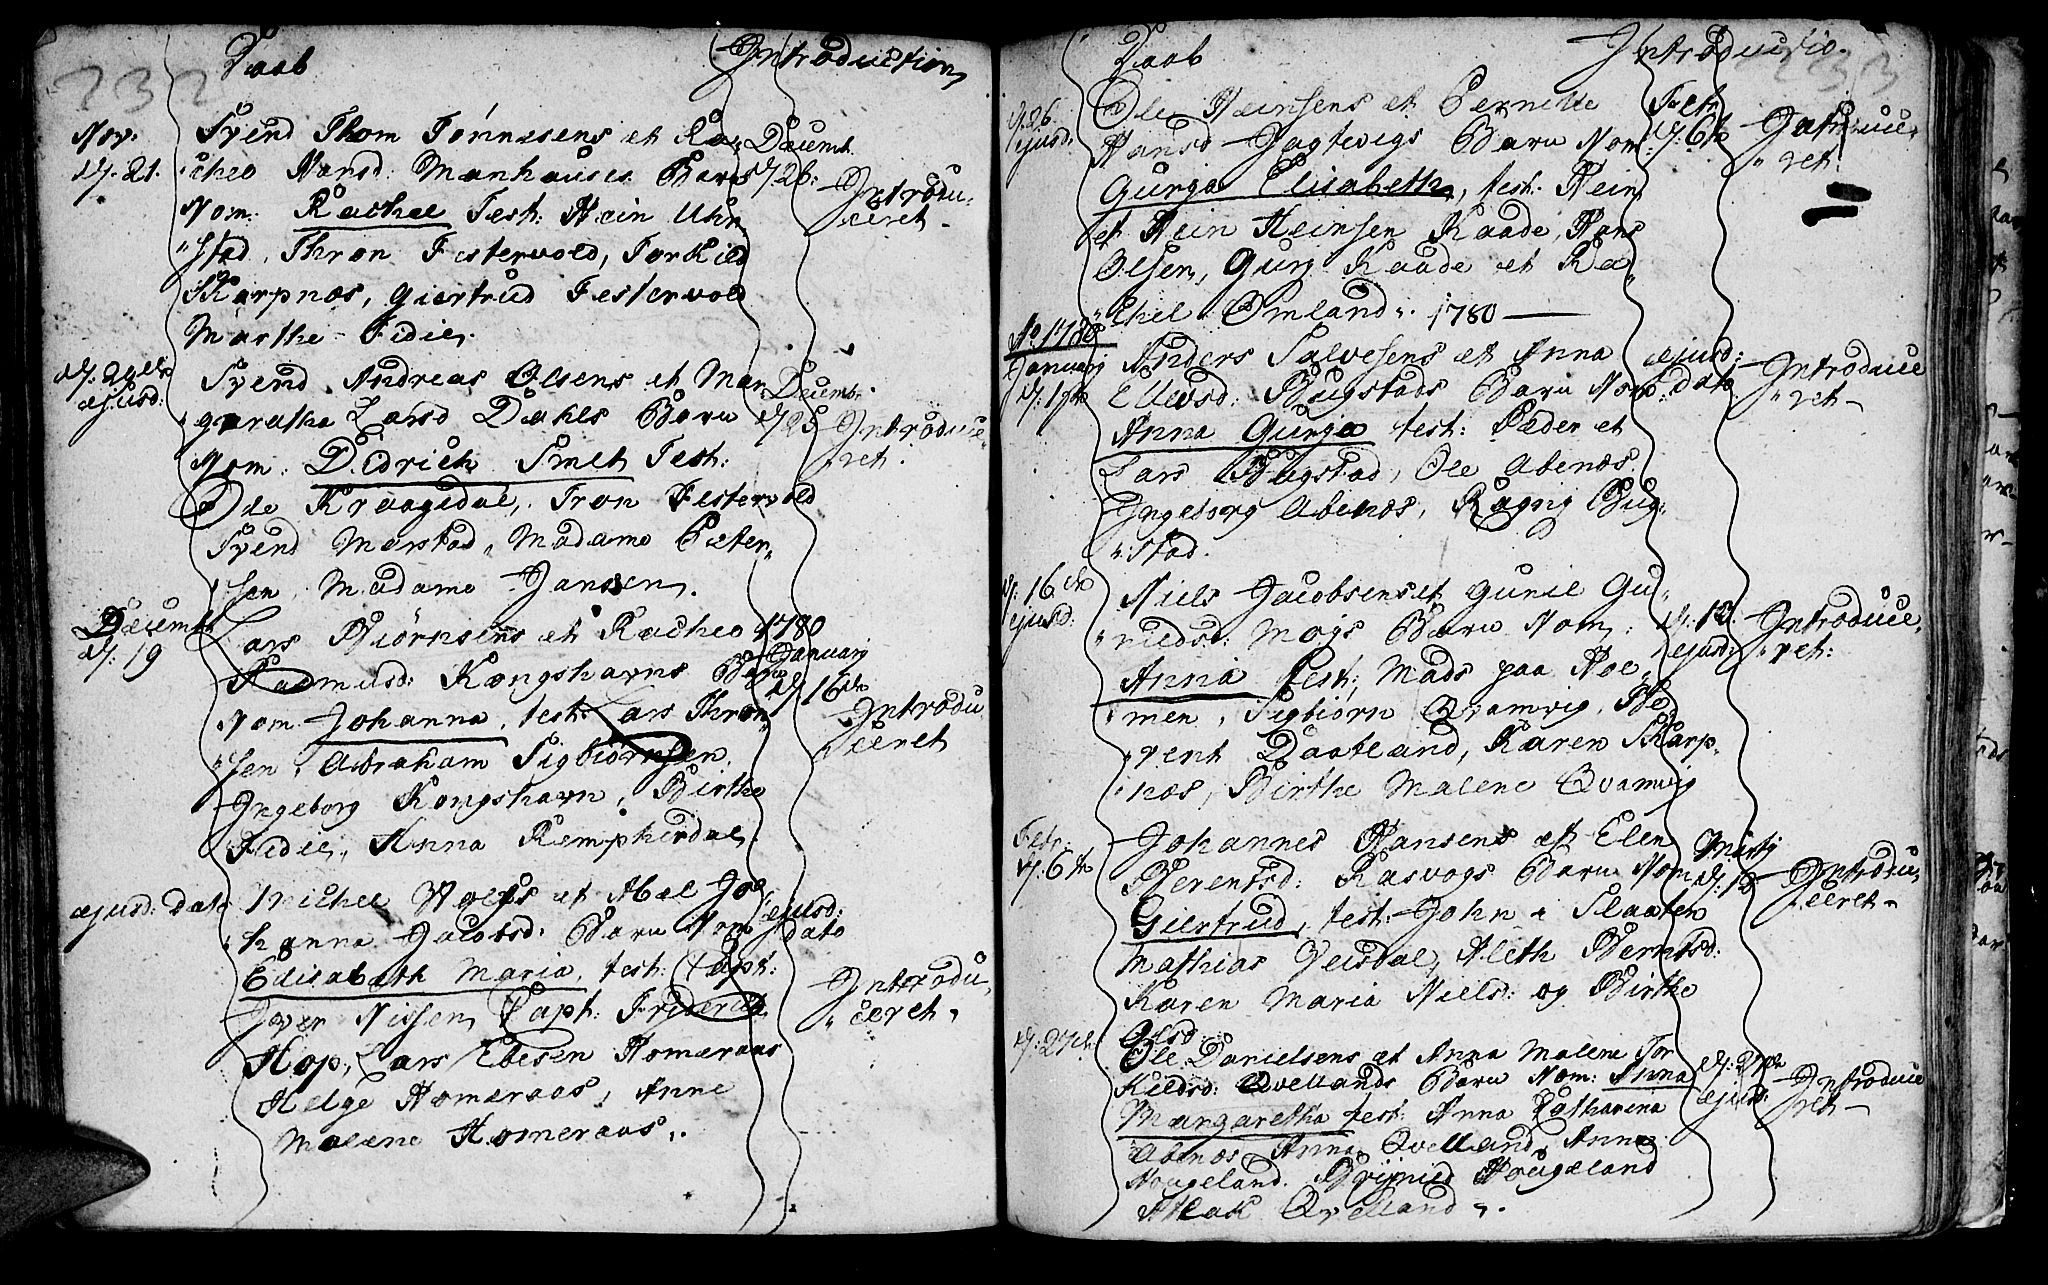 232
Daab
Introduction
Nov:
d/: 21.
Svend Thom Tønnesens et Ra„
„chel Hansd: Manhauses Barn
Nom: Rachel Test: Hein Uhr„
„stad, Thron Festervold, Torkild
Skarpnæs, Giertrud Festervold
Marthe Fidie.
Decembr.
d/ 26:
Introdu„
„ceret
d/: 24de
ejusd:
Svend Andreas Olsens et Mar„
„garetha Larsd Dahls Barn
Nom. Didrich Smet Test:
Ole Kraagedal, Tron Festervold
Svend Marstad, Madame Peter„
„sen, Madame Jansen.
Decembr.
d/ 25
Introduce„
„ret.
Decembr
d/: 19
Lars Biørnsens et Rachel
Rasmusd: Kongshavns Barn
Nom. Johanna, test: Lars Thron„
„sen, Abraham Sigbiørnsen,
Ingeborg Kongshavn, Birthe
Fidie, Anna Remperdal.
1780
January
d/ 16de
Introdu„
„ceret
ejusd: dato
Michel Wolfs et Abel Jo„
„hanna Jacobsd: Barn Nom
Elisabeth Maria, test: Capt:
Iver Nissen, Capt: Friderich
Hop, Lars Ebesen Homeraas
Helge Homeraas, Anne
Malene Homeraas.
ejusd:
dato
Introdu„
„ceret.
233
Daab
Introductio.
d/: 26.
ejusd:
Ole Heinsens et Pernille
Hansd Jagtvigs Barn Nom:
Gurge Elisabeth, test. Hein
et Hein Heinsen Raade, Hans
Olsen, Gurg Raade et Ra„
„chel Omland. 1780
Febr
d/: 6te
Introduce„
„ret.
Ao. 1780
January
d/: 1ste
Anders Salvesens et Anna
Ellevsd: Bugstads Barn Nom:
Anna Gurge test: Peder et
Lars Bugstad, Ole Abenæs.
Ingeborg Abenæs, Ragnig Bug„
„stad.
ejusd:
dato
Introduce
„ret
d/: 16de
ejusd:
Niels Jacobsens et Gunil Gu„
„nuldsd: Mojs Barn Nom:
Anna test: Mads paa Hoe„
„men, Sigbiørn Qvamvig, Be„
„rent Daatland, Karen Skarp„
„næs, Birthe Malene Qvamvig
ejusd:
Introduce„
„ret:
Febr.
d/: 6te
Johannes Hansens et Elen
Berentsd: Rasvogs Barn Nom
Giertrud, test: John i Slaaten
Mathias Veisdal, Aleth Berntsd:
Karen Maria Nielsd: og Birthe
Olsd
Martj
d/: 12
Introdu„
„ceret
d/: 27de
Ole Danielsens et Anna Malene Tor„
kildsd: Qvellands Barn Nom: Anna
Margaretha test: Anna Catharina
Abenæs Anna Qvelland, Anna
Hougeland. Brynild Hougeland
Aslak Qvelland.
d/: 27de
ejusd:
Introduce
„ret